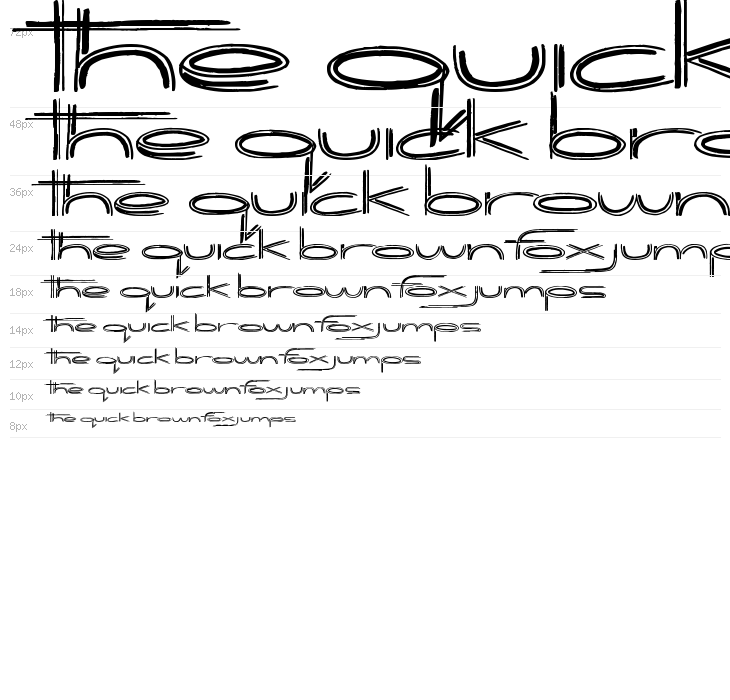 72px the quick
48px the quick bro
36px the quick brown
24px the quick brown fox jump
18px the quick brown fox jumps
14px the quick brown fox jumps
12px the quick brown fox jumps
10px the quick brown fox jumps
8px the quick brown fox jumps